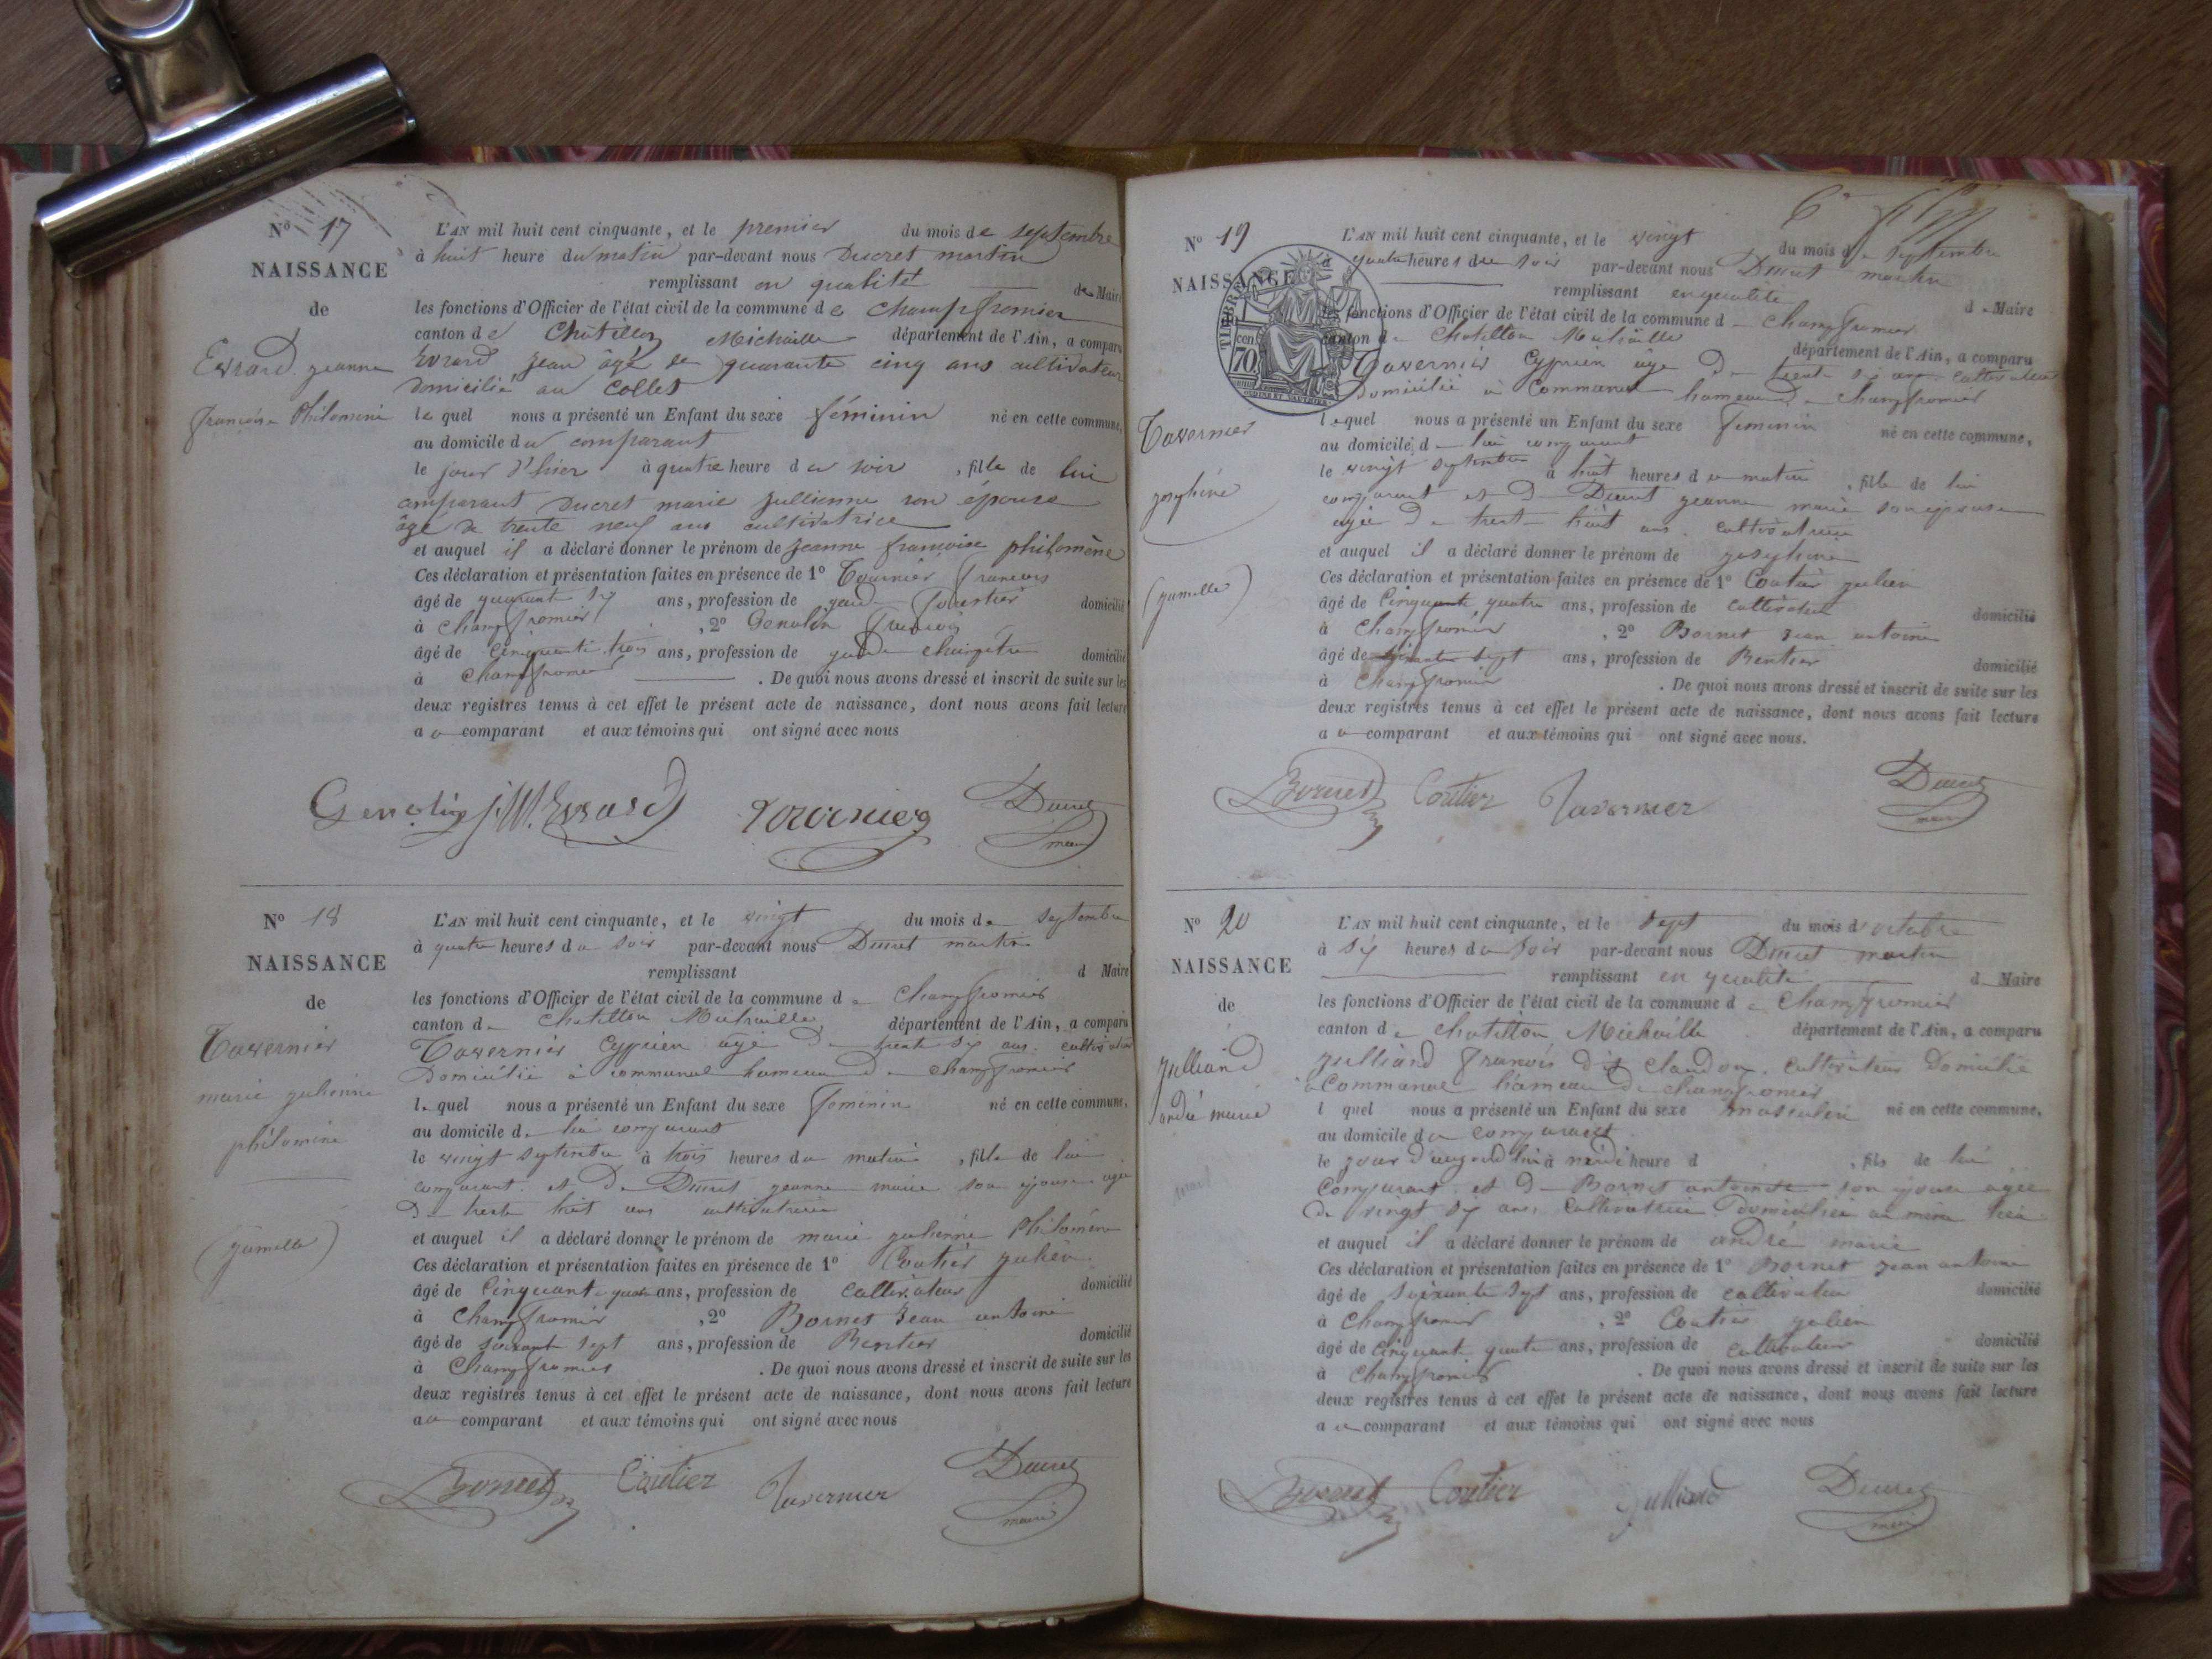 N° 17
NAISSANCE
de
Evrard jeanne
françoise Philomène
L'AN mil huit cent cinquante, et le premier du mois de septembre
à huit heure du matin par-devant nous Ducret martin
remplissant en qualité de Maire
les fonctions d'Officier de l'état civil de la commune de Champfromier
canton de Châtillon Michaille département de l'Ain, a comparu
Evrard jean âgé de quarante cinq ans cultivateur
domicilié au Collet
le quel nous a présenté un Enfant du sexe féminin né en cette commune,
au domicile du comparant
le jour d'hier à quatre heure du soir, fille de lui
comparant Ducret marie jullienne son épouse
âgé de trente neuf ans cultivatrice
et auquel il a déclaré donner le prénom de jeanne françoise philomène
Ces déclaration et présentation faites en présence de 1° Tournier françois
âgé de quarante six ans, profession de garde forestier domicilié
à Champfromier, 2° Genolin françois
âgé de cinquante trois ans, profession de garde champêtre domicilié
à Champfromier. De quoi nous avons dressé et inscrit de suite sur les
deux registres tenus à cet effet le présent acte de naissance, dont nous avons fait lecture
au comparant et aux témoins qui ont signé avec nous
Genolin Evrard Tournier Ducret
maire
N° 18
NAISSANCE
de
Tavernier
marie julienne
philomène
(jumelle)
L'AN mil huit cent cinquante, et le vingt du mois de septembre
à quatre heures du soir par-devant nous Ducret martin
remplissant d Maire
les fonctions d'Officier de l'état civil de la commune de Champfromier
canton de Chatillon Michaille département de l'Ain, a comparu
Tavernier Cyprien âgé de trente six ans cultivateur
Domicilié à Communal hameau de Champfromier
le quel nous a présenté un Enfant du sexe feminin né en cette commune,
au domicile de lui comparant
le vingt septembre à trois heures du matin, fille de lui
comparant et de Ducret jeanne marie son épouse agée
de trente huit ans cultivatrice
et auquel il a déclaré donner le prénom de marie julienne Philomène
Ces déclaration et présentation faites en présence de 1° Coutier julien
âgé de Cinquante quatre ans, profession de Cultivateur domicilié
à Champfromier, 2° Bornet Jean antoine
âgé de soixante sept ans, profession de Rentier domicilié
à Champfromier. De quoi nous avons dressé et inscrit de suite sur les
deux registres tenus à cet effet le présent acte de naissance, dont nous avons fait lecture
au comparant et aux témoins qui ont signé avec nous
Bornet Coutier Tavernier Ducret
maire
N° 19
NAISSANCE
TIMBRE
70 cen.
Tavernier
josephine
(jumelle)
L'AN mil huit cent cinquante, et le vingt du mois de septembre
à quatre heures du soir par-devant nous Ducret martin
remplissant en qualité de Maire
les fonctions d'Officier de l'état civil de la commune d Champfromier
canton de Chatillon Michaille département de l'Ain, a comparu
Tavernier Cyprien âgé de trente six ans cultivateur
Domicilié à Communal hameau de Champfromier
lequel nous a présenté un Enfant du sexe feminin né en cette commune,
au domicile de lui comparant
le vingt septembre à huit heures du matin, fille de lui
comparant et de Ducret jeanne marie son épouse
agée de trente huit ans cultivatrice
et auquel il a déclaré donner le prénom de josephine
Ces déclaration et présentation faites en présence de 1° Coutier julien
âgé de Cinquante quatre ans, profession de cultivateur domicilié
à Champfromier, 2° Bornet Jean antoine
âgé de sept ans, profession de Rentier domicilié
à Champfromier. De quoi nous avons dressé et inscrit de suite sur les
deux registres tenus à cet effet le présent acte de naissance, dont nous avons fait lecture
au comparant et aux témoins qui ont signé avec nous.
Bornet Coutier Tavernier Ducret
maire
N° 20
NAISSANCE
de
julliard
andré marie
L'AN mil huit cent cinquante, et le sept du mois d'octobre
à six heures du soir par-devant nous Ducret martin
remplissant en qualité d Maire
les fonctions d'Officier de l'état civil de la commune de Champfromier
canton de Chatillon Michaille département de l'Ain, a comparu
julliard françois dit claudon cultivateur Domicilié
à Communal hameau de champfromier
l quel nous a présenté un Enfant du sexe masculin né en cette commune,
au domicile du comparant
le jour d'aujourd'hui à midi heure d, fils de lui
comparant et de Bornet antoinette son épouse agée
de vingt six ans cultivatrice domiciliée au même lieu
et auquel il a déclaré donner le prénom de andré marie
Ces déclaration et présentation faites en présence de 1° Bornet jean antoine
âgé de soixante sept ans, profession de cultivateur domicilié
à Champfromier, 2° Coutier julien
âgé de Cinquante quatre ans, profession de cultivateur domicilié
à Champfromier. De quoi nous avons dressé et inscrit de suite sur les
deux registres tenus à cet effet le présent acte de naissance, dont nous avons fait lecture
au comparant et aux témoins qui ont signé avec nous
Bornet Coutier julliard Ducret
maire